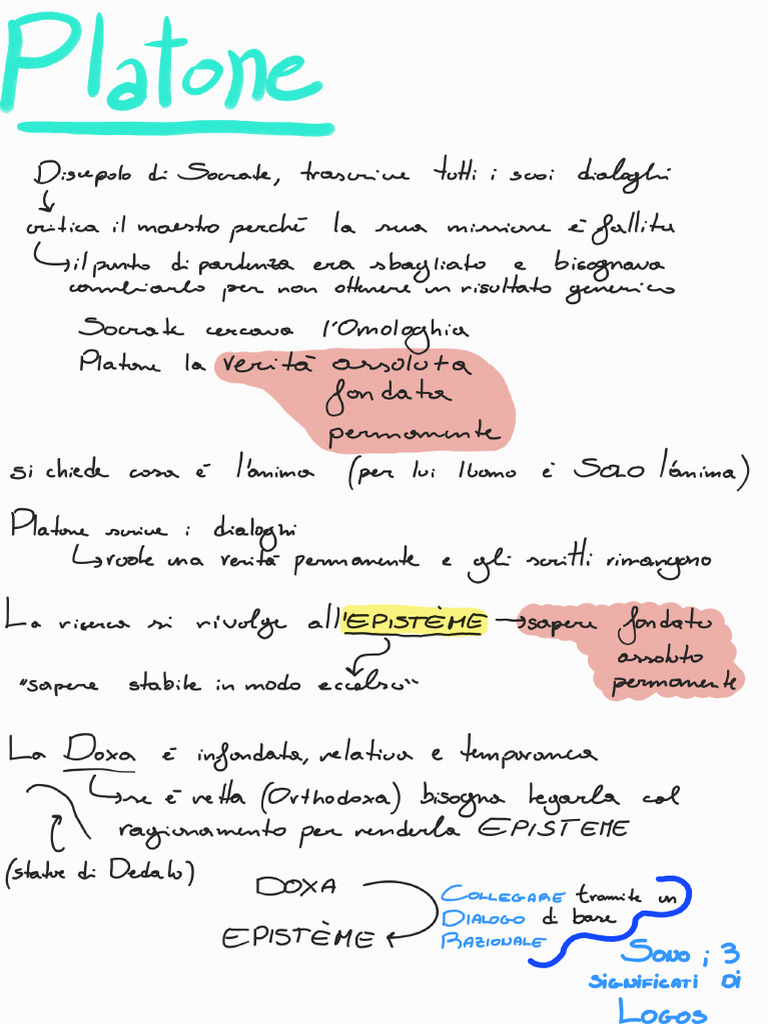 Platone
Discepolo di Socrate, trascrive tutti i suoi dialoghi
critica il maestro perché la sua missione è fallita
il punto di partenza era sbagliato e bisognava
cambiarlo per non ottenere un risultato generico
Socrate cercava l'Omologhia
Platone la verità assoluta
fondata
permanente
si chiede cosa è l'anima (per lui l'uomo è SOLO l'anima)
Platone scrive i dialoghi
vuole una verità permanente e gli scritti rimangono
La ricerca si rivolge all'EPISTÈME → sapere fondato
assoluto
"sapere stabile in modo eccelso" permanente
La Doxa è infondata, relativa e temporanea
se è retta (Orthodoxa) bisogna legarla col
ragionamento per renderla EPISTEME
(statue di Dedalo)
DOXA
EPISTÈME
COLLEGARE tramite un
DIALOGO di base
RAZIONALE
SONO i 3
SIGNIFICATI DI
LOGOS